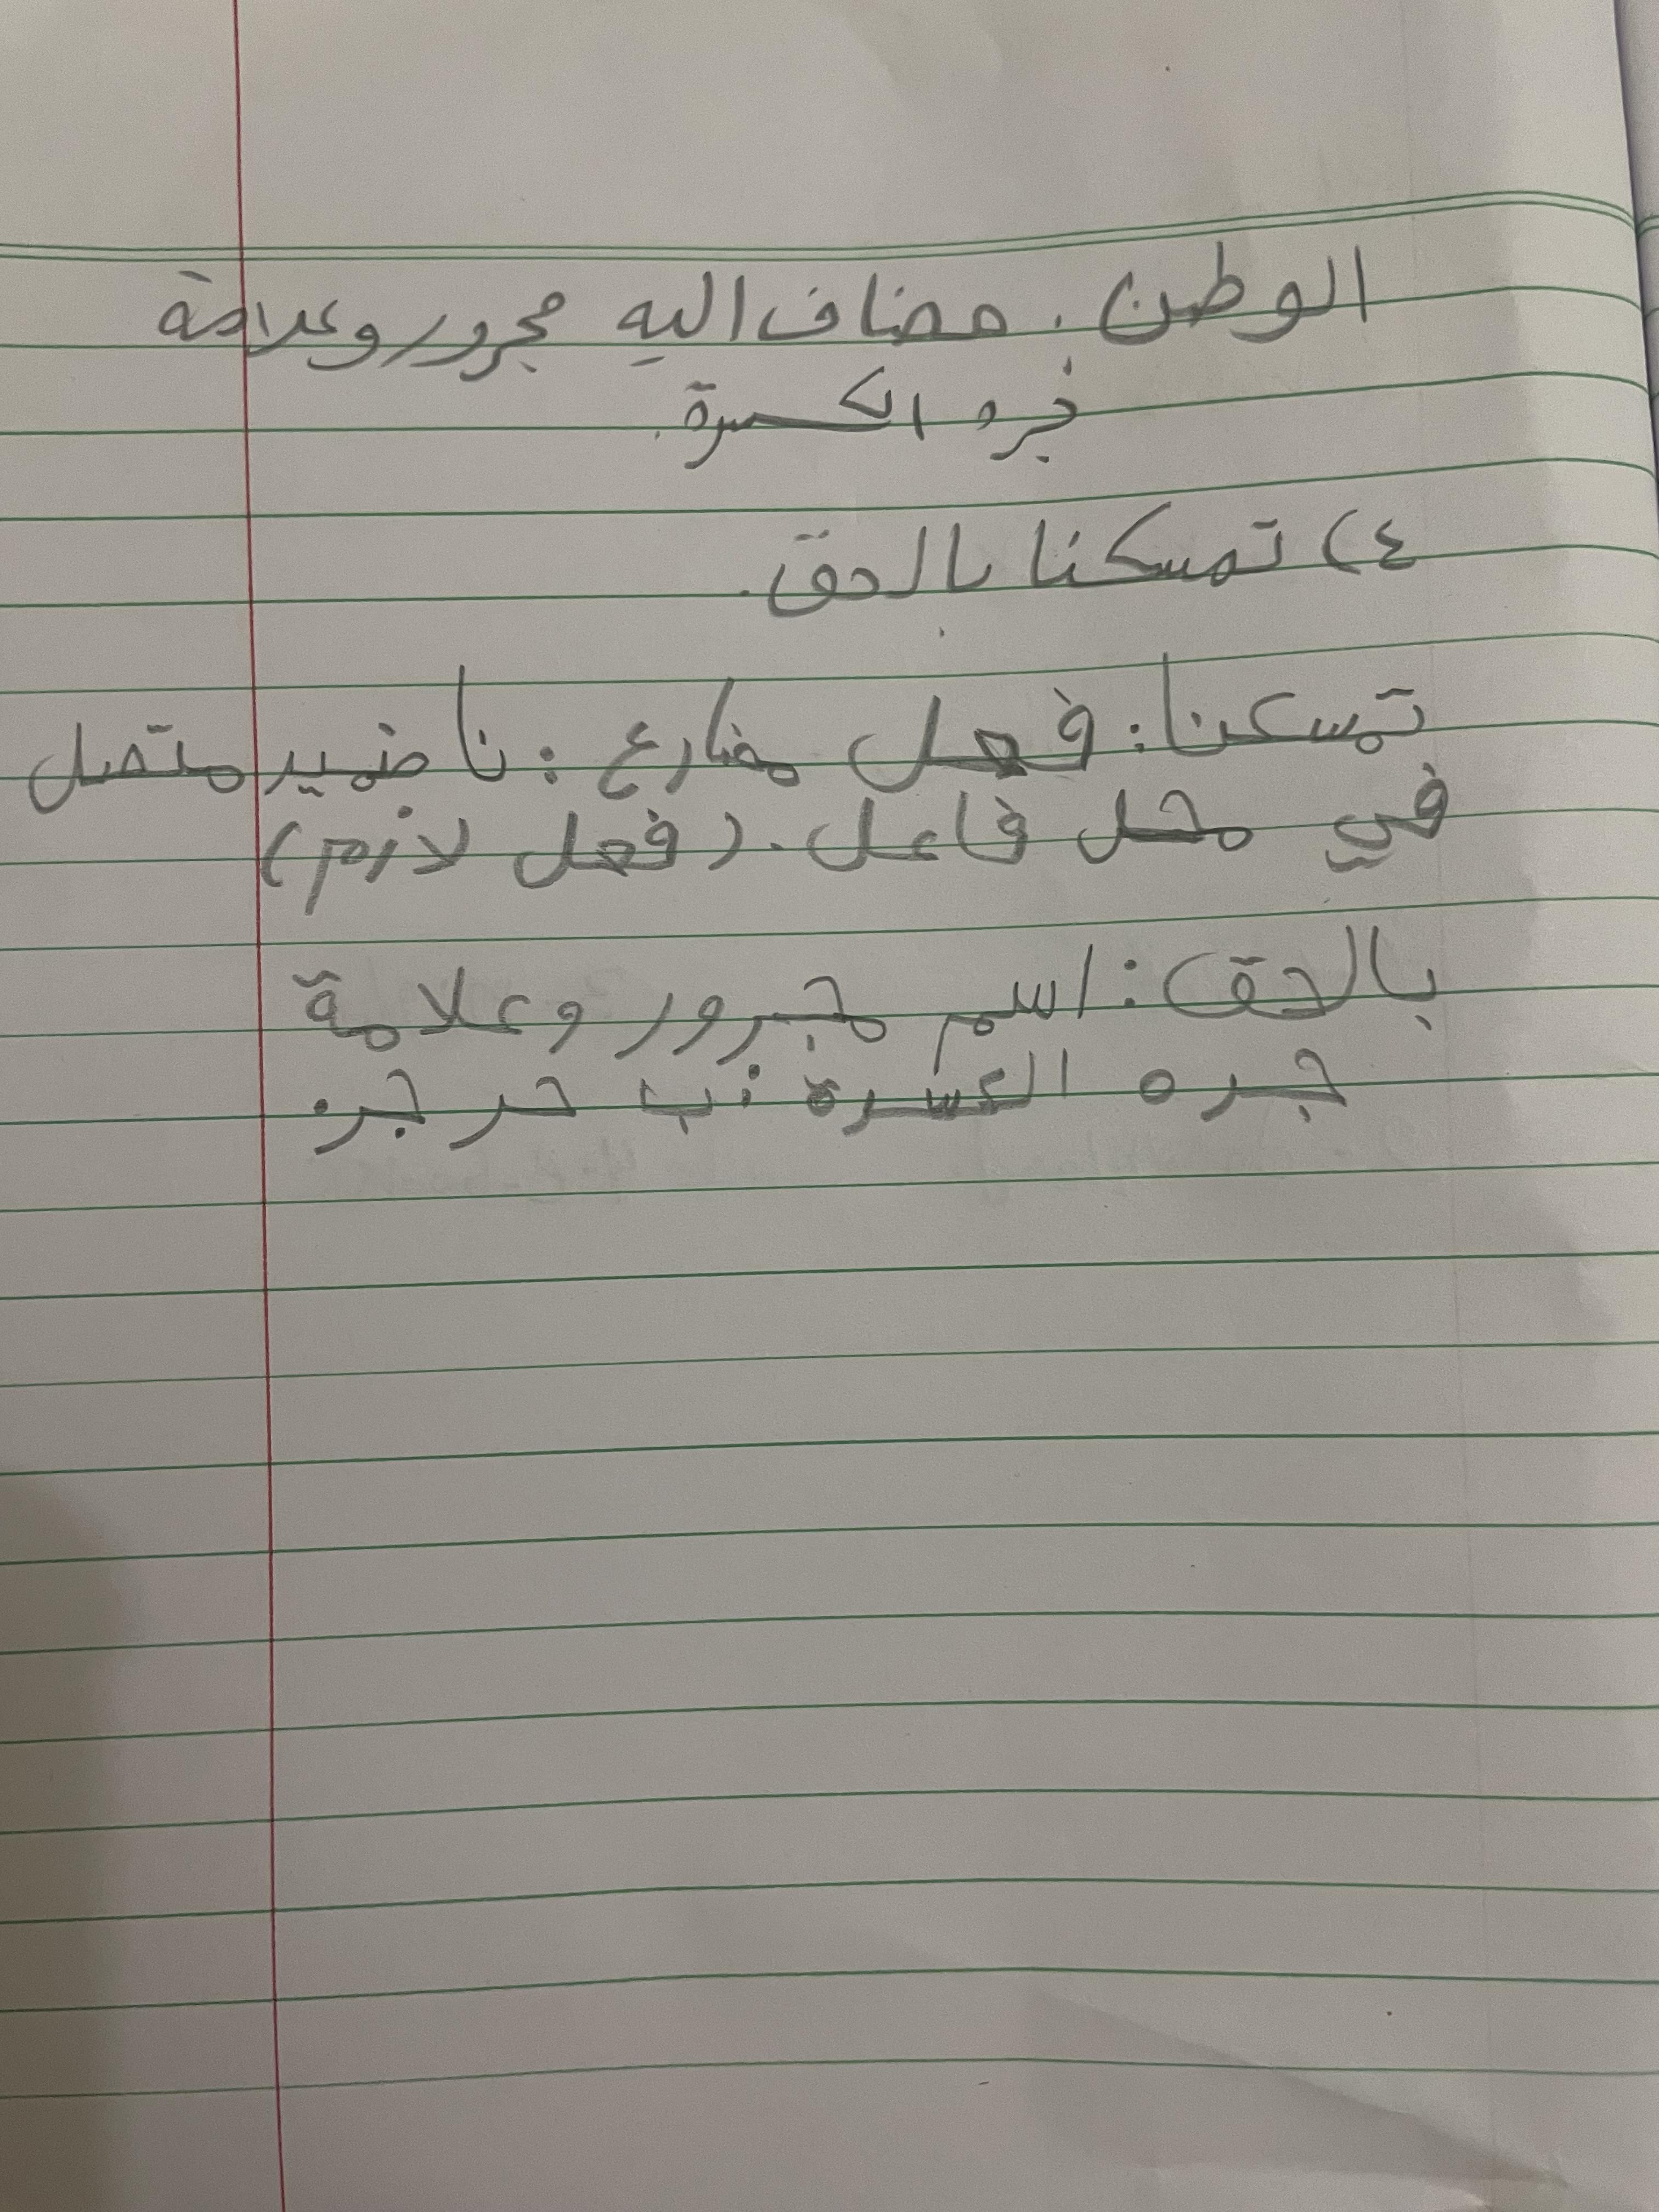 الوطن . مضاف اليه مجرور وعلامة
جره الكسرة.
٤) تمسكنا بالحق.
تمسكنا : فعل مضارع : نا ضمير متصل
في محل فاعل . (فعل لازم)
بالحق : اسم مجرور وعلامة
جره الكسرة : ب حر جر.